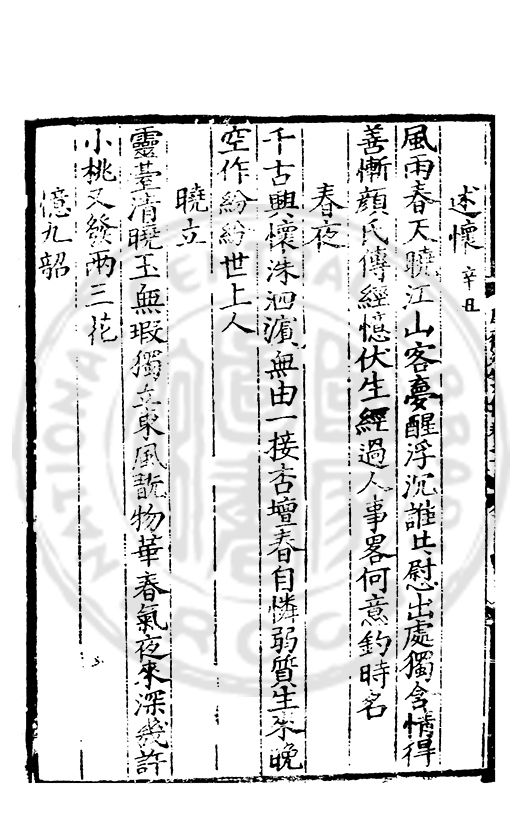 述懷 辛丑
風雨春天曉江山客夣醒浮沉誰共慰出處獨含情得
善慚顔氏傳經憶伏生經過人事畧何意釣時名
春夜
千古興懷洙泗濵無由一接杏壇春自憐弱質生来晚
空作紛紛世上人
曉立
靈䑓清曉玉無瑕獨立東風翫物華春氣夜来深幾許
小桃又發兩三花
憶九韶